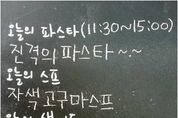 오늘의 파스타(11:30~15:00)
진격의파스타~.~
오늘의 스프
자색고구마스프